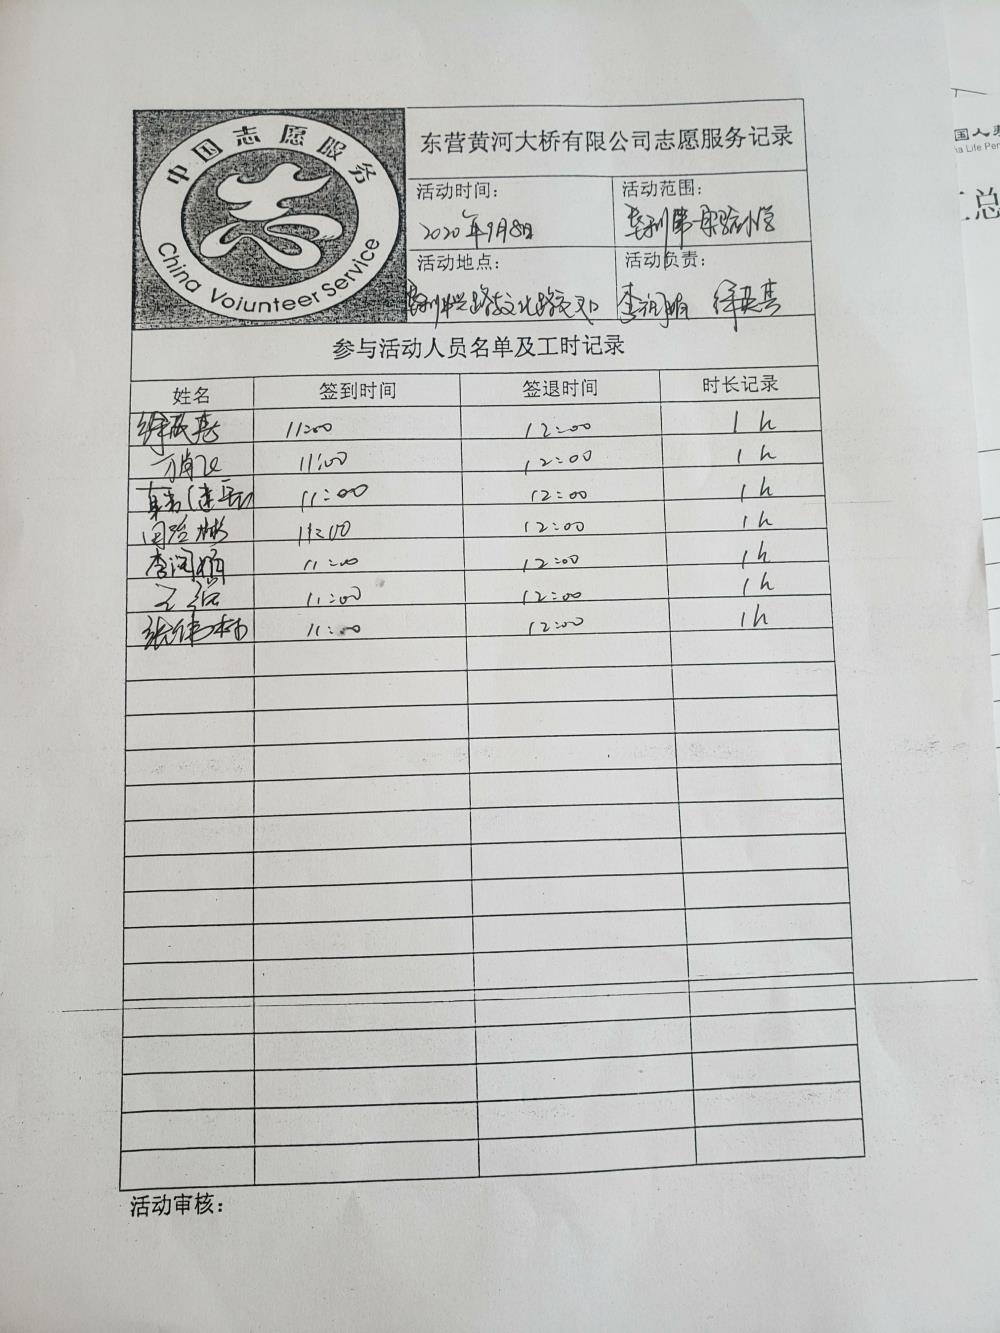 中国志愿服务
China Voiunteer Service
东营黄河大桥有限公司志愿服务记录
活动时间：
2020年9月8日
活动范围：
垦利第一实验小学
活动地点：
活动负责：
李润娟
参与活动人员名单及工时记录
姓名 签到时间 签退时间 时长记录
11:00 12:00 1h
11:00 12:00 1h
11:00 12:00 1h
11:00 12:00 1h
李润娟 11:00 12:00 1h
11:00 12:00 1h
张伟林 11:00 12:00 1h
活动审核：
国人寿
na Life Pen
汇总